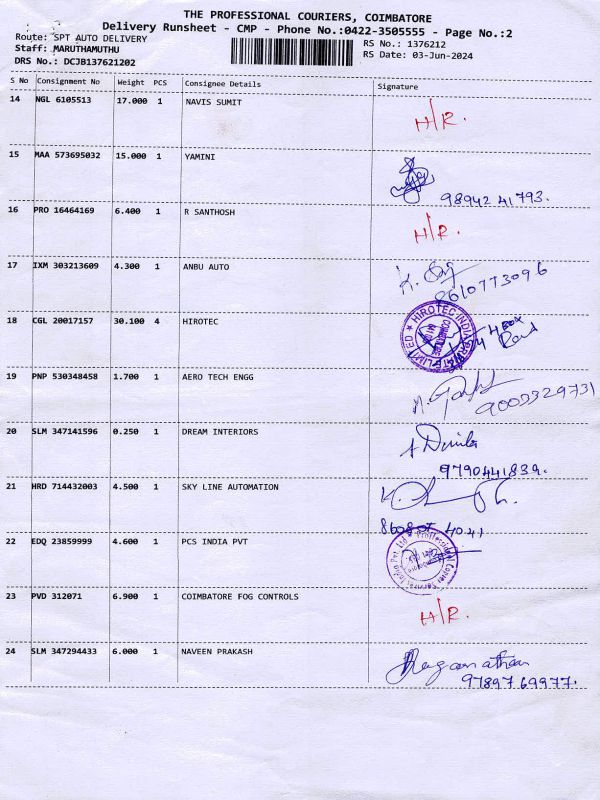 THE PROFESSIONAL COURIERS, COIMBATORE
Delivery Runsheet - CMP - Phone No.:0422-3505555 - Page No.:2
Route: SPT AUTO DELIVERY
Staff: MARUTHAMUTHU
DRS No.: DCJB137621202
RS No.: 1376212
RS Date: 03-Jun-2024
S No Consignment No Weight PCS Consignee Details Signature
14 NGL 6105513 17.000 1 NAVIS SUMIT H/R.
15 MAA 573695032 15.000 1 YAMINI
98942 41793.
16 PRO 16464169 6.400 1 R SANTHOSH H/R.
17 IXM 303213609 4.300 1 ANBU AUTO
8610773096
18 CGL 20017157 30.100 4 HIROTEC
HIROTEC INDIA PRIVATE LIMITED
4 Box
19 PNP 530348458 1.700 1 AERO TECH ENGG
9003329731
20 SLM 347141596 0.250 1 DREAM INTERIORS
9790441839.
21 HRD 714432003 4.500 1 SKY LINE AUTOMATION
22 EDQ 23859999 4.600 1 PCS INDIA PVT
23 PVD 312071 6.900 1 COIMBATORE FOG CONTROLS H/R.
24 SLM 347294433 6.000 1 NAVEEN PRAKASH
97897 69977.